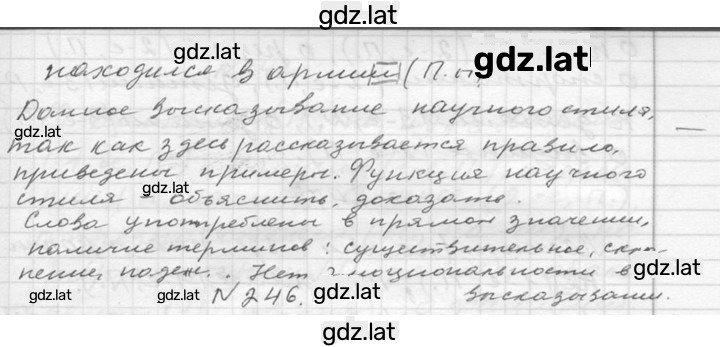 gdz.lat
gdz.lat
gdz.lat
находился в армии (П.п)
Данное высказывание научного стиля,
gdz.lat
так как здесь рассказывается правило,
приведены примеры. Функция научного
стиля - объяснить, доказать.
gdz.lat
Слова употреблены в прямом значении,
gdz.lat
наличие терминов: существительное, скло-
нение, падеж. Нет эмоциональности в
gdz.lat gdz.lat N 246. высказывании.
gdz.lat
gdz.lat